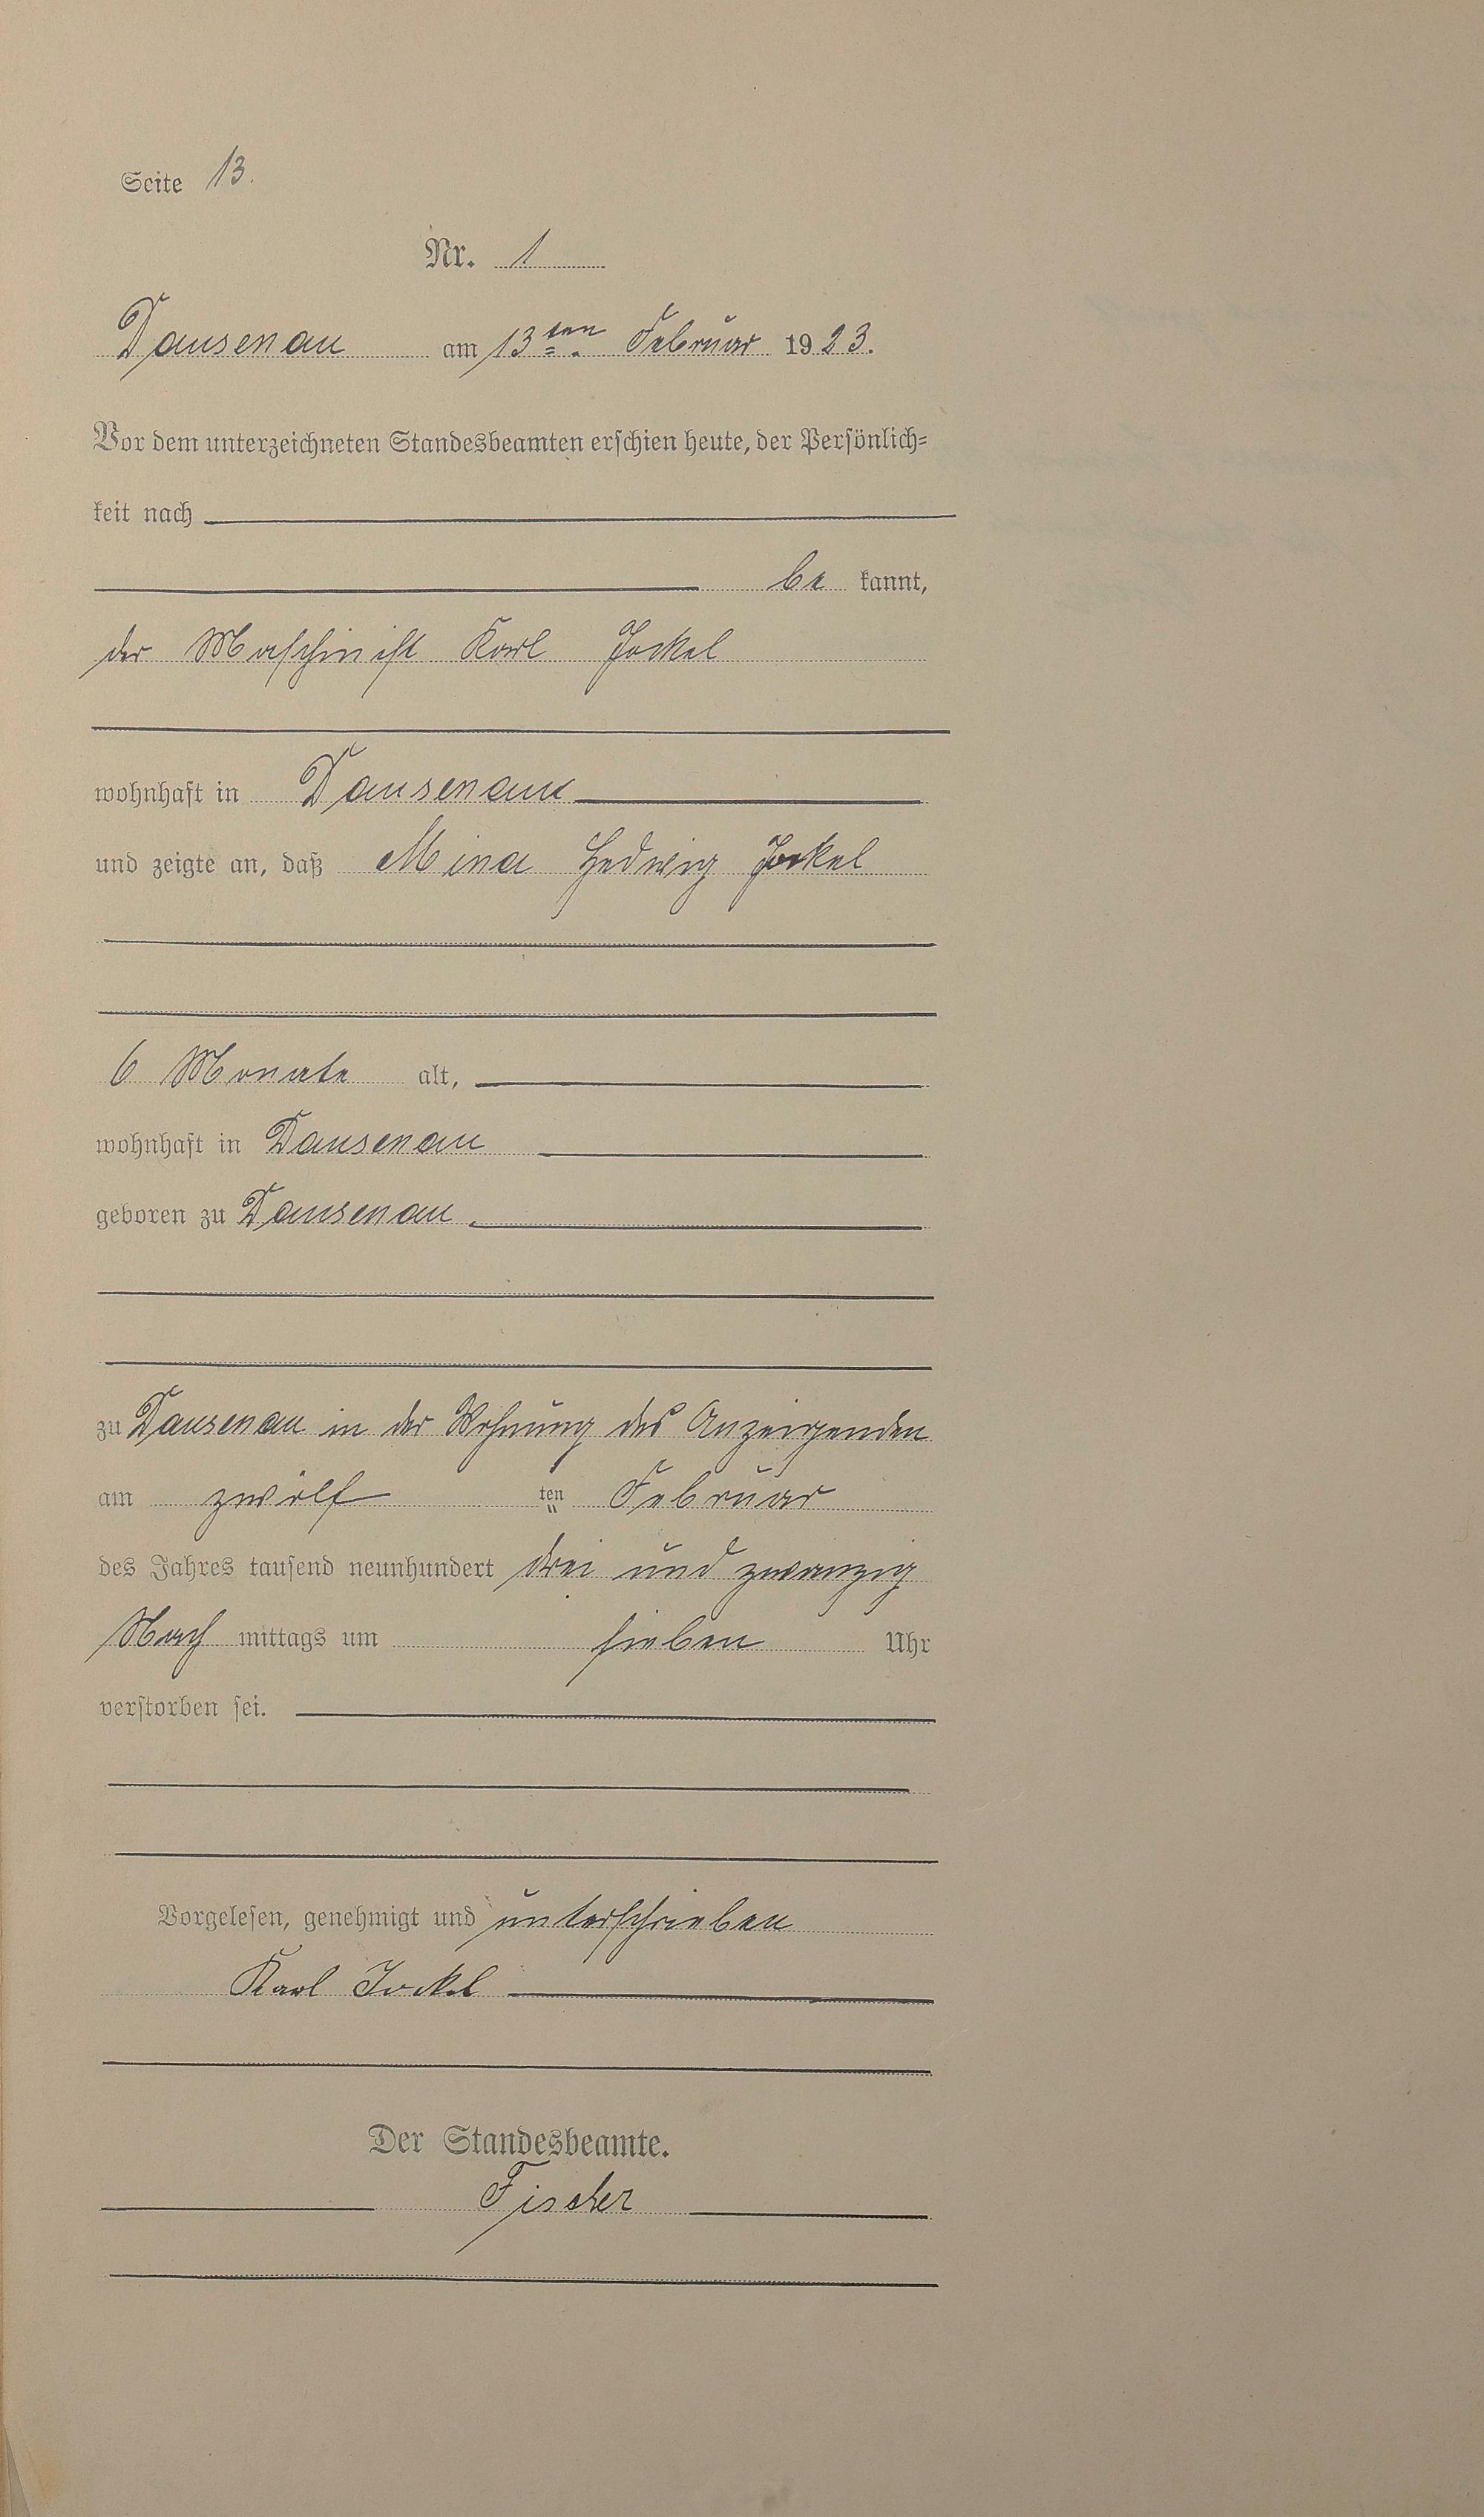 Seite 13.
Nr. 1
Dausenau am 13ten Februar 1923.
Vor dem unterzeichneten Standesbeamten erschien heute, der Persönlich=
keit nach
be kannt,
der Maschinist Karl Jockel
wohnhaft in Dausenau
und zeigte an, daß Mina Hedwig Jockel
6 Monate alt,
wohnhaft in Dausenau
geboren zu Dausenau
zu Dausenau in der Wohnung des Anzeigenden
am zwölf ten Februar
des Jahres tausend neunhundert drei und zwanzig
Nach mittags um sieben Uhr
verstorben sei.
Vorgelesen, genehmigt und unterschrieben
Karl Jockel
Der Standesbeamte.
Fischer